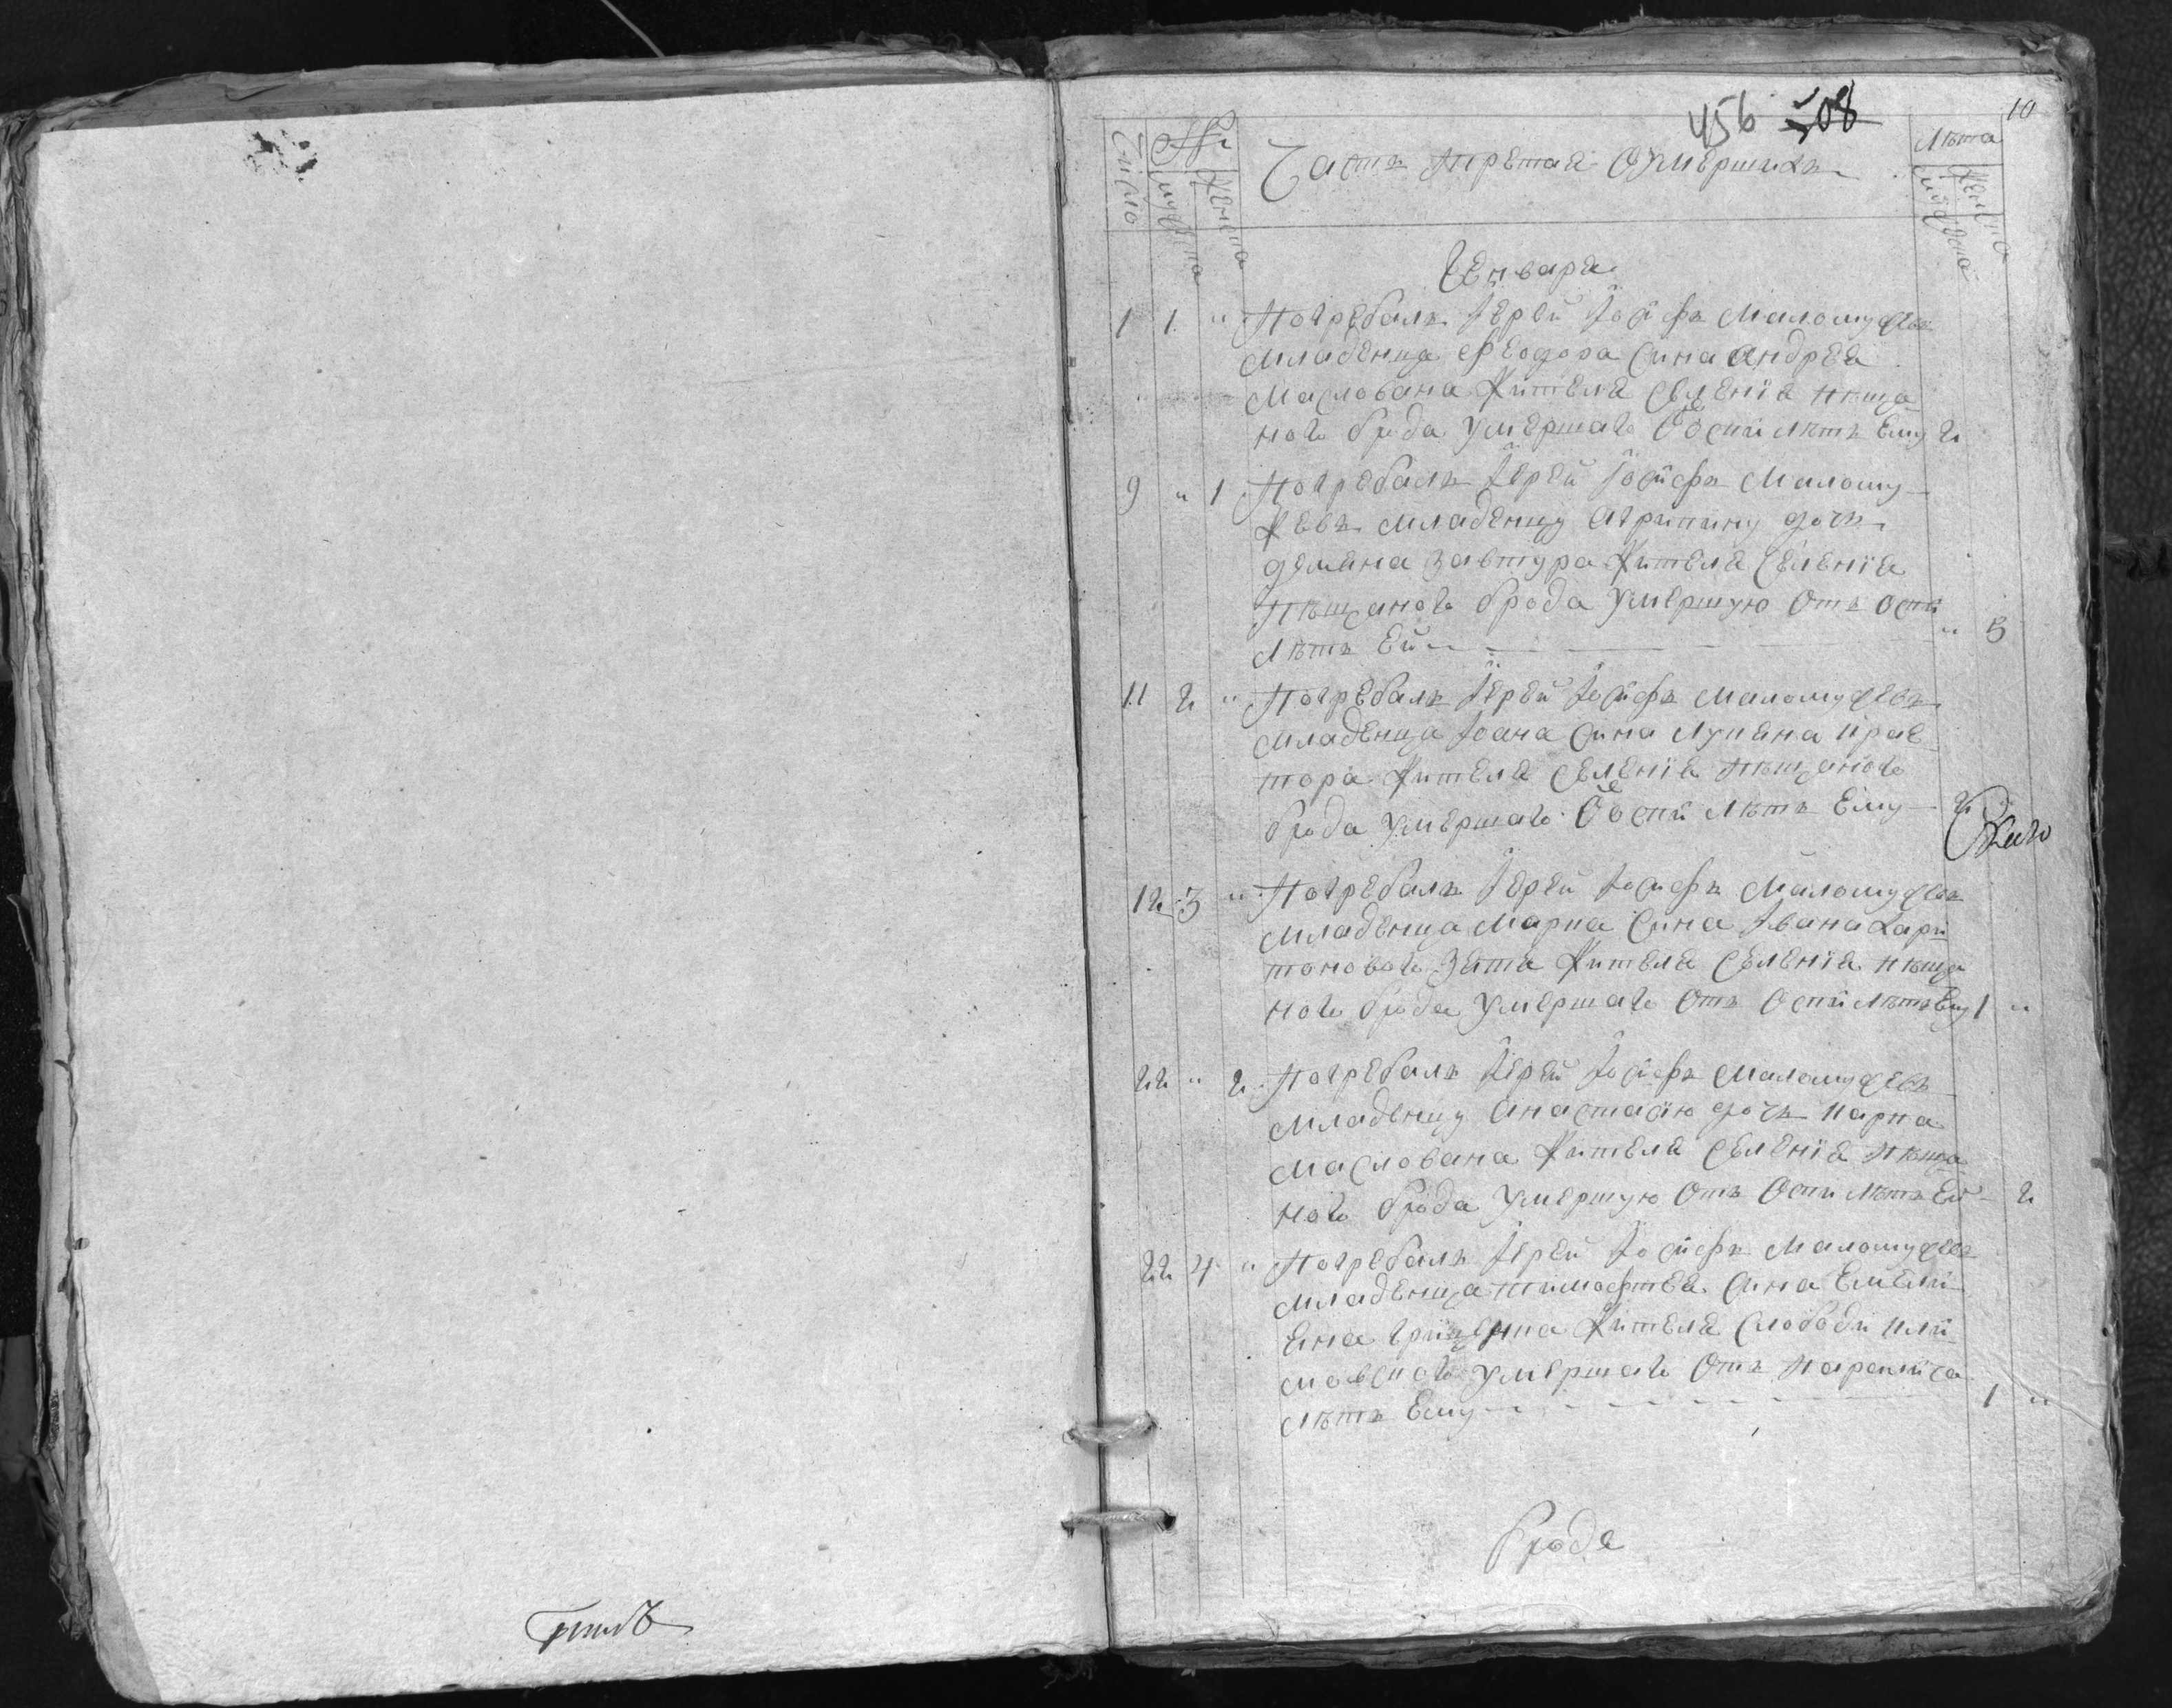 10
456 508
Число
№
мужеска
женска
Часть третая О умершихъ
Лѣта
мужеска
женска
Генваря
1 1 " Погребалъ Іерей Іосифъ Маломужевъ
младенца Феодора сина Андрея
Маслована жителя Селенія Пѣща
ного брода умершаго Ѿ оспи лѣтъ Ему 2
9 " 1 Погребалъ Іерей Іосифъ Малому
жевъ младеницу Агрипину дочь
демяна завтура жителя Селенія
Пѣщаного брода умершую Отъ оспи
лѣтъ Ей " 3
11 2 " Погребалъ Іерей Іосифъ Маломужевъ
младенца Іоана сина Лукяна Крав
тора жителя Селенія Пѣщаного
брода умершаго Ѿ оспи лѣтъ Ему 2
12 3 " Погребалъ Іерей Іосифъ Маломужевъ
младенца Марка сина Івана Хари
тонового зятя жителя Селенія Пѣща
ного брода умершаго Отъ Оспи лѣтъ Ему 1 "
22 " 2 Погребалъ Іерей Іосифъ Маломужевъ
младеницу Анастасію дочь Карпа
Маслована жителя Селенія Пѣща
ного брода умершую Отъ Оспи лѣтъ Ей 2
22 4 " Погребалъ Іерей Іосифъ Маломужевъ
младенца Тимофтея сина Емели
яна Грищенка жителя Слободи Кли
мовского умершаго Отъ
лѣтъ Ему 1 "
брода